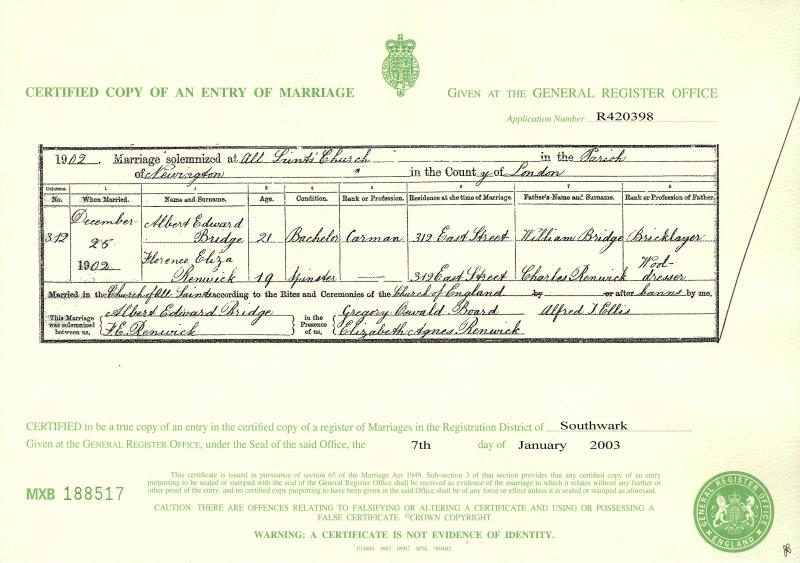 CERTIFIED COPY OF AN ENTRY OF MARRIAGE
GIVEN AT THE GENERAL REGISTER OFFICE
Application Number R420398
1902. Marriage solemnized at All Saints' Church in the Parish
of Newington in the County of London
Columns. 1 2 3 4 5 6 7 8
No. When Married. Name and Surname. Age. Condition. Rank or Profession. Residence at the time of Marriage. Father's Name and Surname. Rank or Profession of Father.
312 December 25 1902 Albert Edward Bridge 21 Bachelor Carman 312 East Street William Bridge Bricklayer
Florence Eliza Renwick 19 Spinster — 312 East Street Charles Renwick Wool-dresser
Married in the Church of All Saints according to the Rites and Ceremonies of the Church of England by or after banns by me,
This Marriage was solemnized between us, Albert Edward Bridge in the Presence of us, Gregory Oswald Board Alfred J. Ellis
F. E. Renwick Elizabeth Agnes Renwick
CERTIFIED to be a true copy of an entry in the certified copy of a register of Marriages in the Registration District of Southwark
Given at the GENERAL REGISTER OFFICE, under the Seal of the said Office, the 7th day of January 2003
MXB 188517
This certificate is issued in pursuance of section 65 of the Marriage Act 1949. Sub-section 3 of that section provides that any certified copy of an entry
purporting to be sealed or stamped with the seal of the General Register Office shall be received as evidence of the marriage to which it relates without any further or
other proof of the entry, and no certified copy purporting to have been given in the said Office shall be of any force or effect unless it is sealed or stamped as aforesaid.
CAUTION: THERE ARE OFFENCES RELATING TO FALSIFYING OR ALTERING A CERTIFICATE AND USING OR POSSESSING A
FALSE CERTIFICATE. ©CROWN COPYRIGHT
WARNING: A CERTIFICATE IS NOT EVIDENCE OF IDENTITY.
GENERAL REGISTER OFFICE
ENGLAND